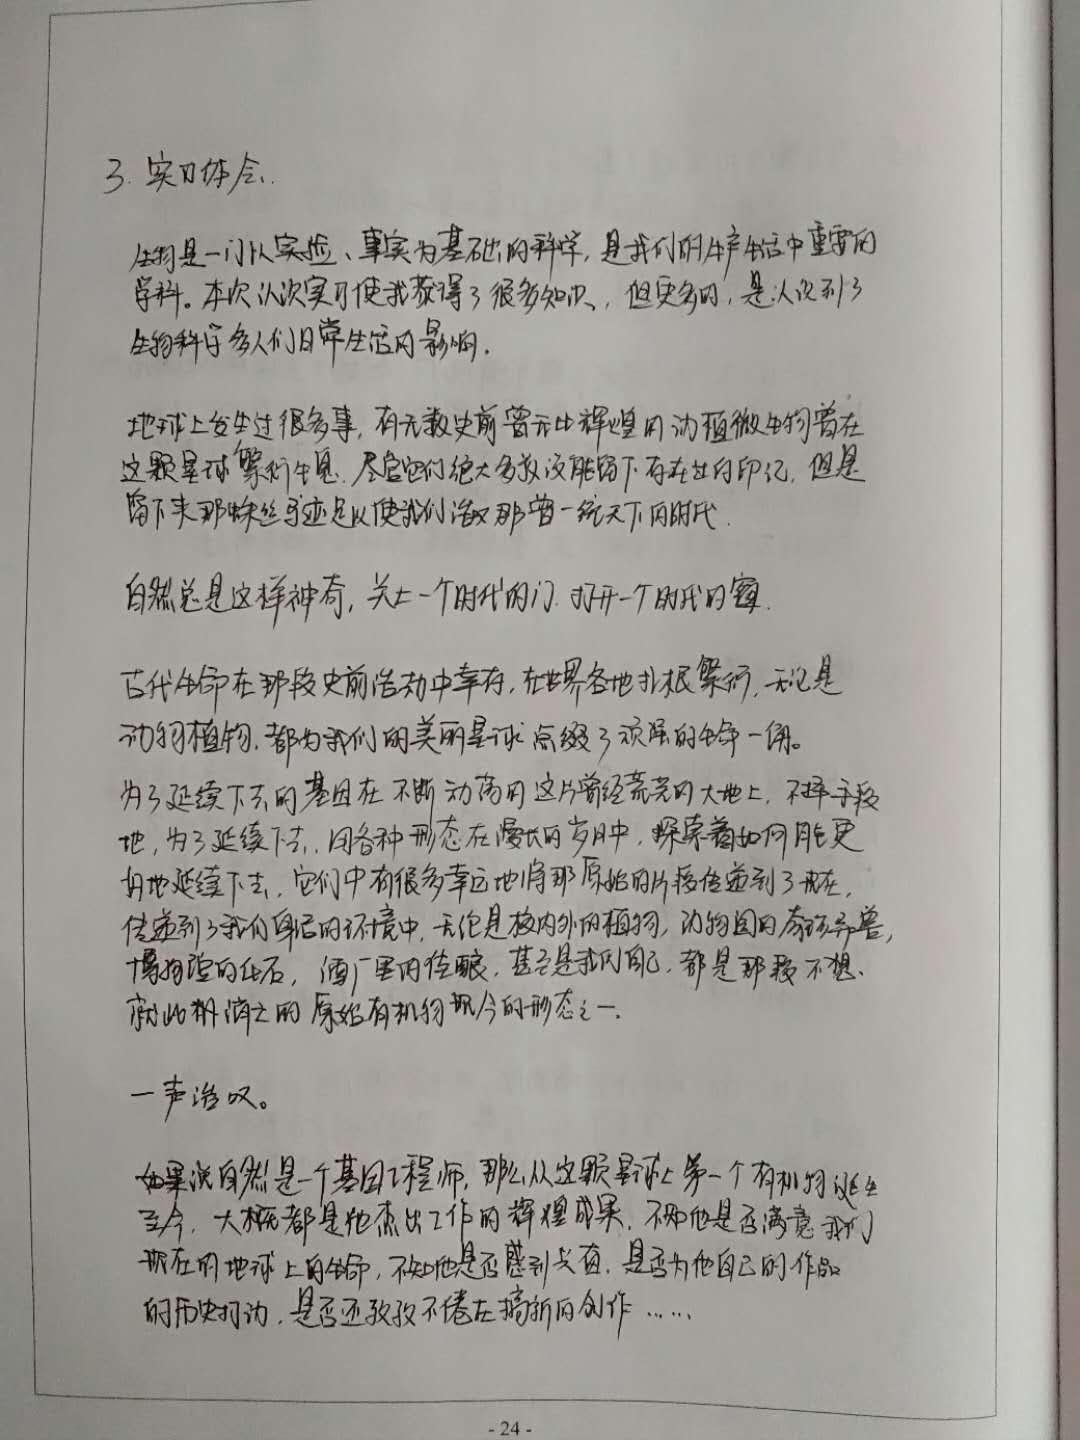 3. 实习体会.
生物是一门以实验、事实为基础的科学, 是我们的生产生活中重要的
学科。本次认次实习使我获得了很多知识、, 但更多的, 是认识到了
生物科学多人们日常生活的影响.
地球上发生过很多事, 有无数史前曾无比辉煌的动植微生物曾在
这颗星球繁衍生息. 尽管它们绝大多数没能留下存在过的印记, 但是
留下来那蛛丝马迹足以使我们 那曾一统天下的时代.
自然总是这样神奇, 关上一个时代的门. 打开一个时代的窗.
古代生命在那段史前活动中幸存, 在世界各地扎根繁衍, 无论是
动物植物, 都为我们的美丽星球点缀了顽强的生命一角。
为了延续下去的基因在不断动荡的这片曾经荒芜的大地上, 不择手段
地, 为了延续下去. 用各种形态在漫长的岁月中, 探索着如何能更
好地延续下去. 它们中有很多幸运地将那原始的片段传递到了现在,
传递到了我们身后的环境中, 无论是校内外的植物, 动物园的奇珍异兽,
博物馆的化石, 酒厂里的佳酿, 甚至是我们自己, 都是那段不想
就此 的原始有机物现今的形态之一.
一声 叹。
如果说自然是一个基因工程师, 那么从这颗星球上第一个有机物诞生
至今, 大概都是他杰出工作的辉煌成果, 不知他是否满意我们
现在的地球上的生命, 不知他是否感到 , 是否为他自己的作品
的历史打动, 是否还孜孜不倦在搞新的创作 ……